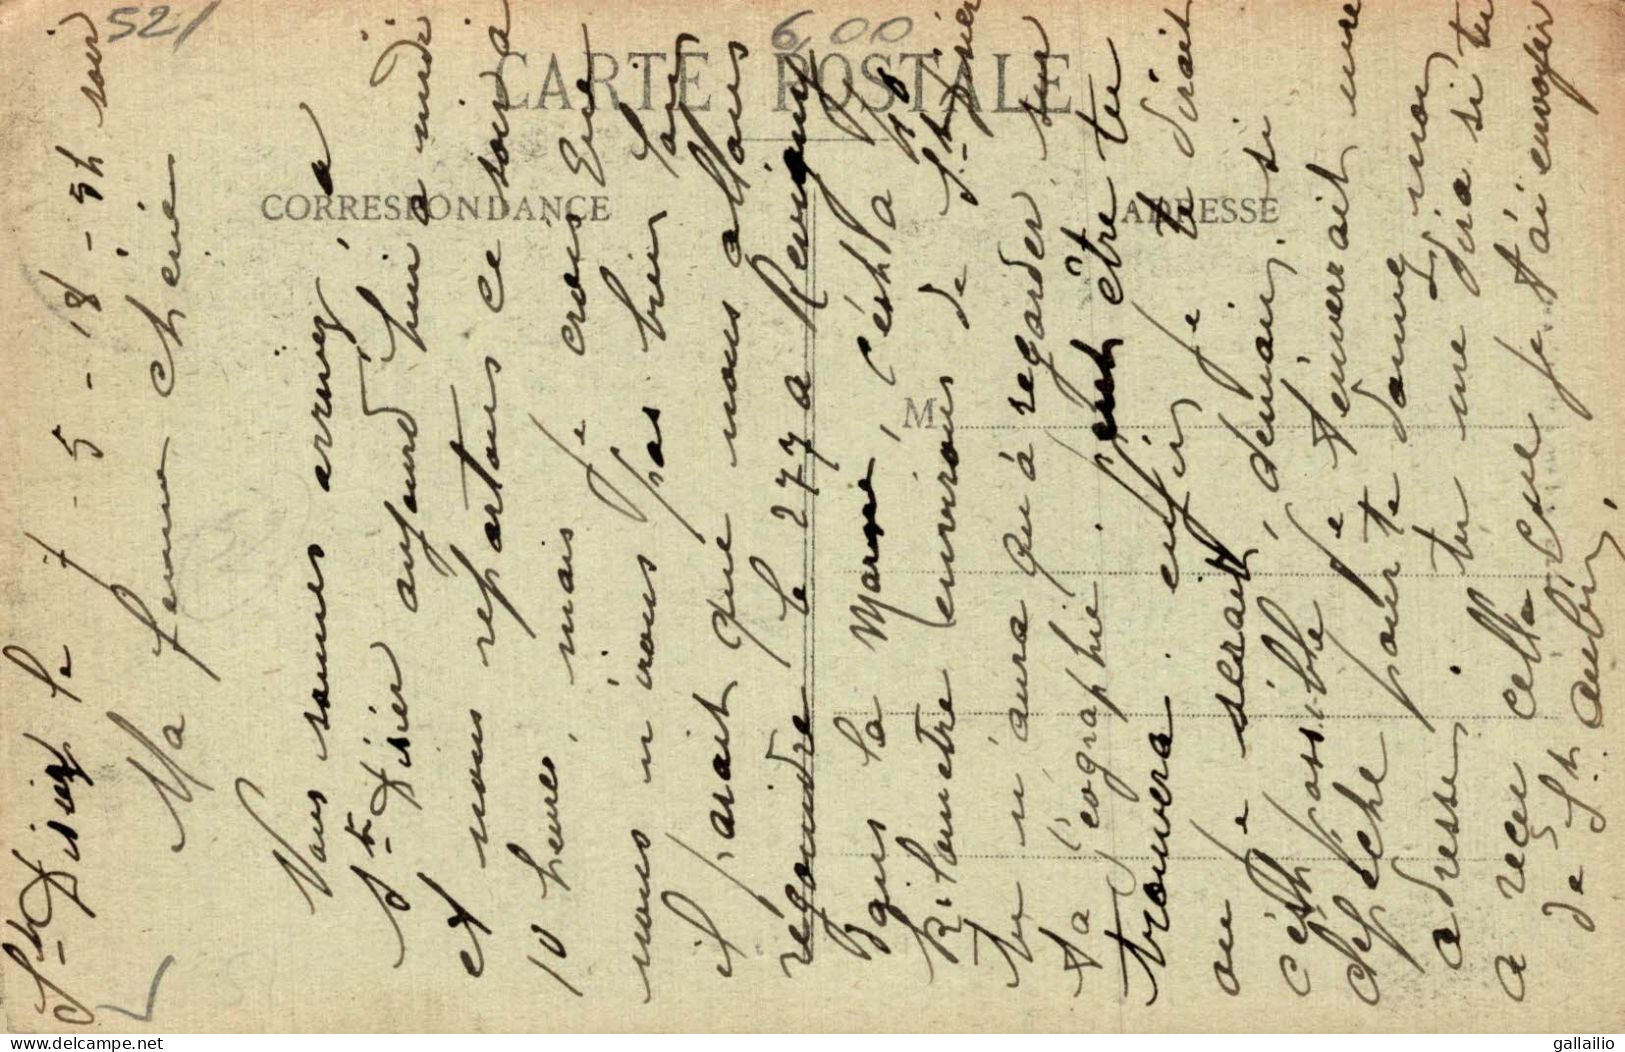 521
600
CARTE POSTALE
CORRESPONDANCE
ADRESSE
M
St Disier le 7 - 5 - 18 - 5h soir
Ma femme chérie
Nous sommes arrivez a
St Disier aujourd'hui a midi
et nous repartons ce soir a
10 heures, mais je crois que
nous n'irons pas bien loin
il parait que nous allons
régoindre le 277 a Revigny
dans la Marne, c'est a
Kilomètre environs de St Disier
tu n'aura qu'à regarder sur
ta géographie. peut être tu
trouvera. enfin je te dirait
ou je serait, démain, si
c'est possible je t'enverrait une
depeche pour te donner mon
adresse. tu me dira si tu
a reçu cella que je t'ai envoyer
de St aubin,
gallailio